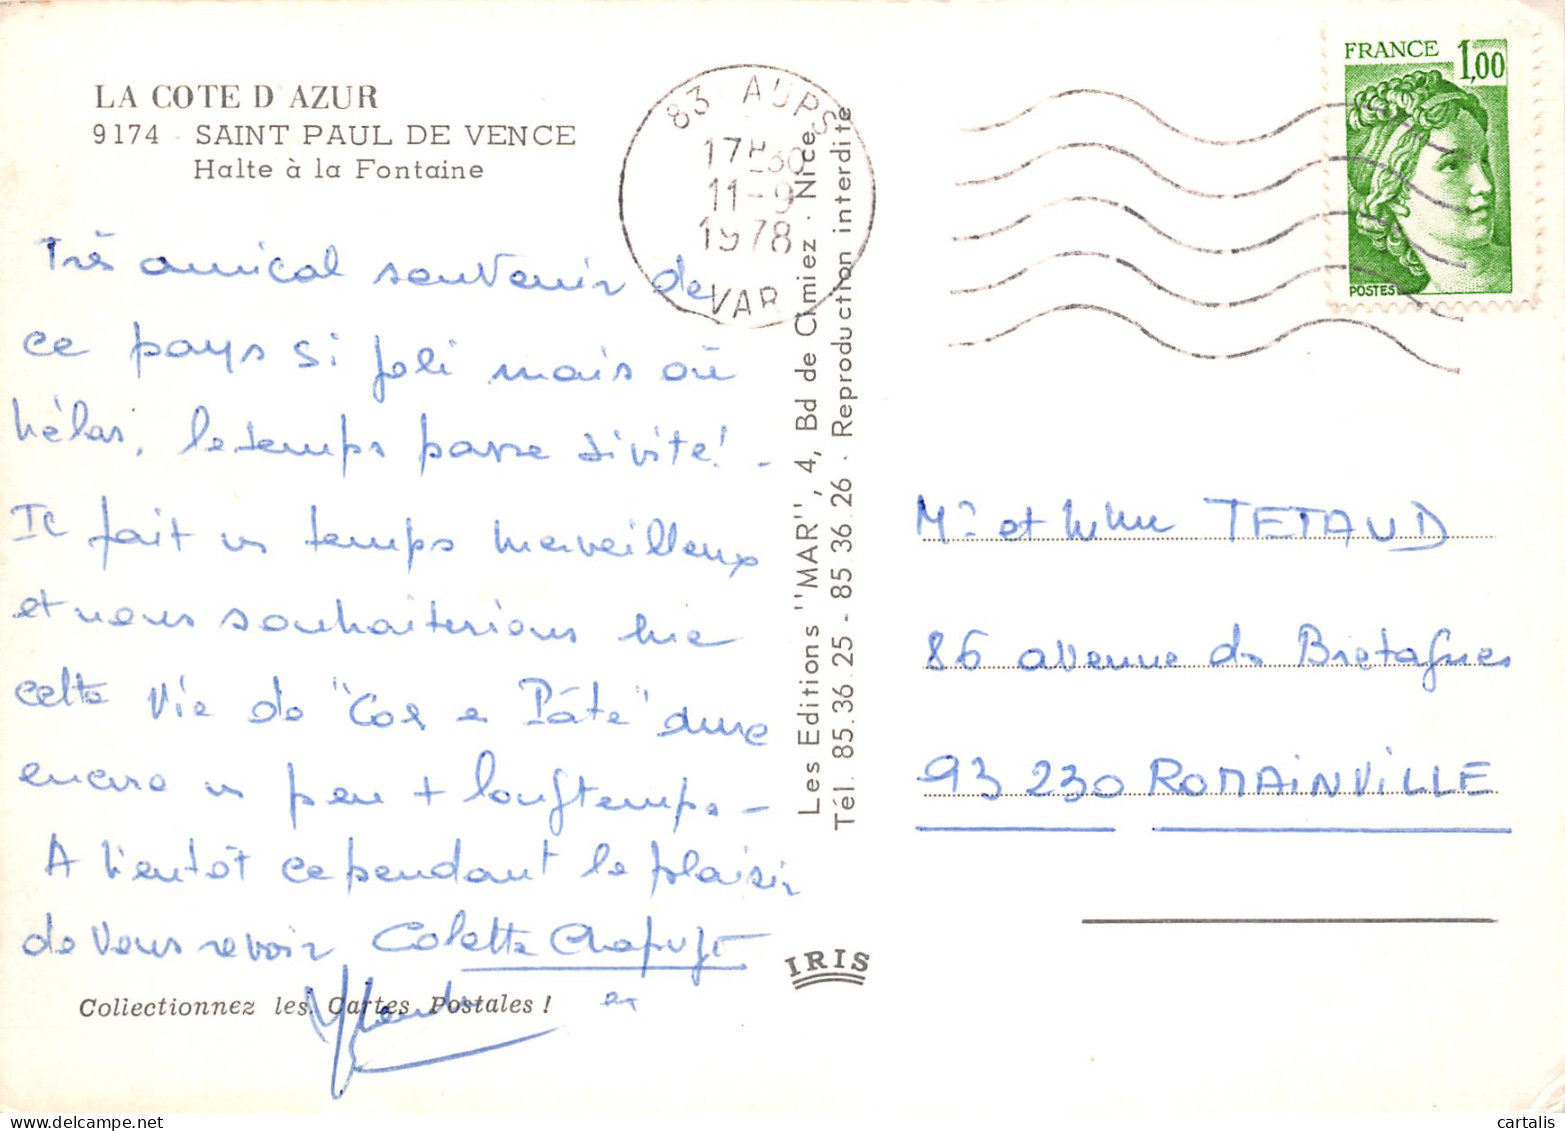 LA COTE D'AZUR
9174 - SAINT PAUL DE VENCE
Halte à la Fontaine
Très amical souvenir de
ce pays si joli mais où
hélas, le temps passe si vite! -
Il fait un temps merveilleux
et nous souhaiterions que
cette vie de "Coq en Pâte" dure
encore un peu + longtemps -
A bientôt cependant le plaisir
de vous revoir Colette
et
Collectionnez les Cartes Postales !
83 AUPS
17H30
11-9
1978
VAR
Les Editions "MAR", 4, Bd de Cimiez - Nice
Tél. 85.36.25 - 85.36.26 - Reproduction interdite
IRIS
FRANCE 1,00
POSTES
Mr et Mme TETAUD
86 avenue de Bretagnes
93 230 ROMAINVILLE
cartalis